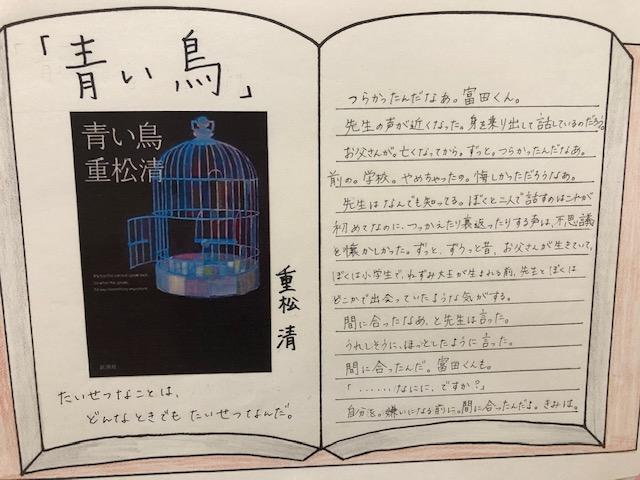 「青い鳥」
青い鳥
重松清
新潮社
重松 清
たいせつなことは、
どんなときでも たいせつなんだ。
つらかったんだなあ。富田くん。
先生の声が近くなった。身を乗り出して話しているのだろう。
お父さんが。亡くなってから。ずっと。つらかったんだなあ。
前の。学校。やめちゃったの。悔しかっただろうなあ。
先生はなんでも知ってる。ぼくと二人で話すのはこれが
初めてなのに、つっかえたり裏返ったりする声は、不思議
と懐かしかった。ずっと、ずうっと昔、お父さんが生きていて、
ぼくは小学生で、ねずみ大王が生まれる前、先生とぼくは
どこかで出会っていたような気がする。
間に合ったなあ、と先生は言った。
うれしそうに、ほっとしたように言った。
間に合ったんだ。富田くんも。
「……なにに、ですか?」
自分を。嫌いになる前に。間に合ったんだよ。きみは。